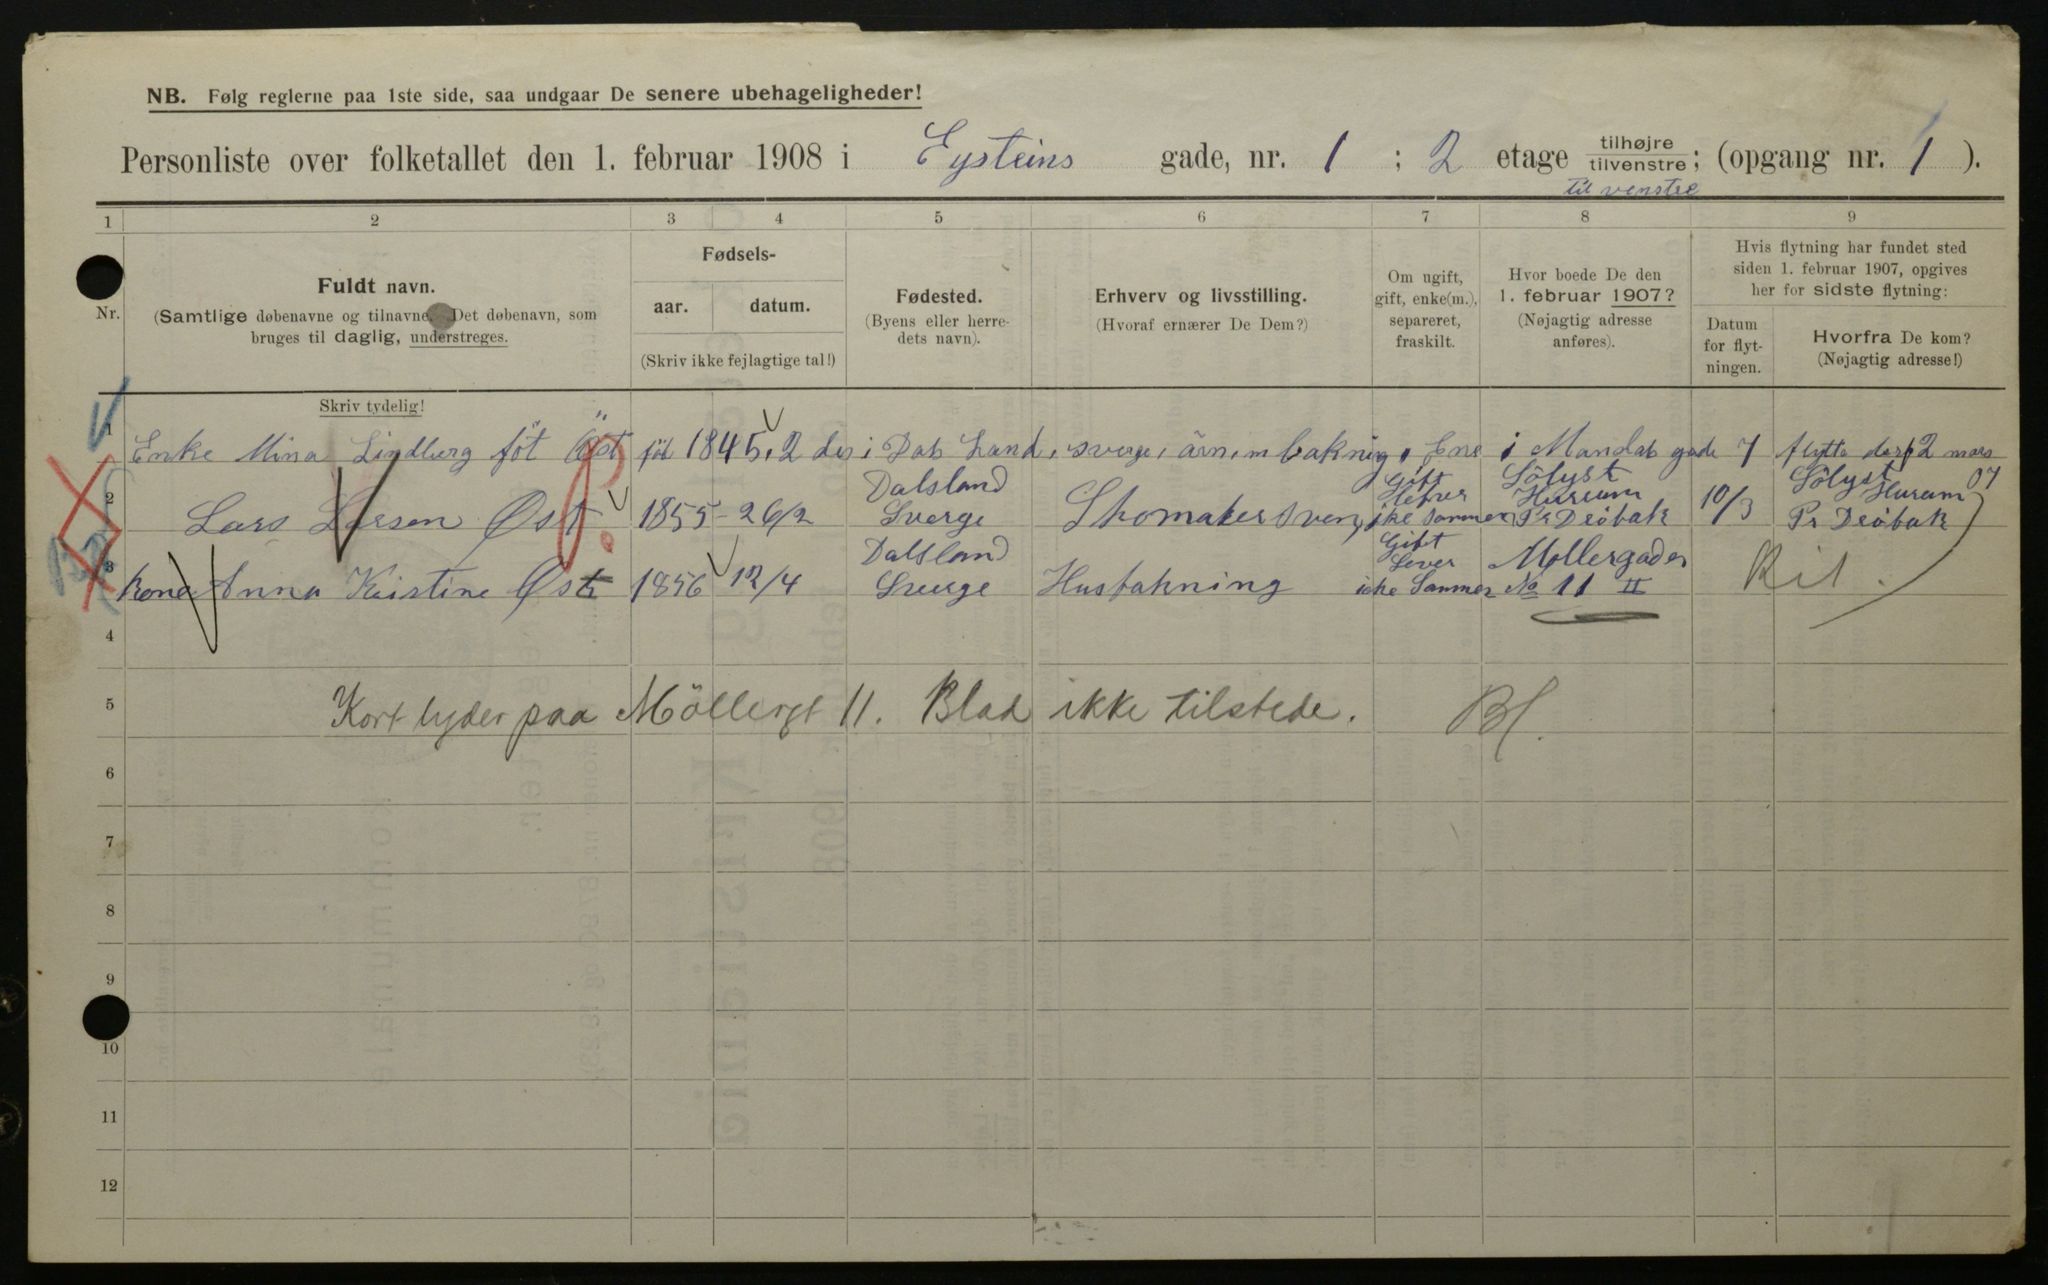 NB. Følg reglerne paa 1ste side, saa undgaar De senere ubehageligheder!
Personliste over folketallet den 1. februar 1908 i Eysteins gade, nr. 1 ; 2 etage tilhøjre tilvenstre; (opgang nr. 1 ).
til venstre
1 2 3 4 5 6 7 8 9
Nr.
Fuldt navn.
(Samtlige døbenavne og tilnavne. Det døbenavn, som
bruges til daglig, understreges.
Skriv tydelig!
Fødsels-
aar. datum.
(Skriv ikke fejlagtige tal!)
Fødested.
(Byens eller herre-
dets navn).
Erhverv og livsstilling.
(Hvoraf ernærer De Dem?)
Om ugift,
gift, enke(m.),
separeret,
fraskilt.
Hvor boede De den
1. februar 1907?
(Nøjagtig adresse
anføres).
Hvis flytning har fundet sted
siden 1. februar 1907, opgives
her for sidste flytning:
Datum
for flyt-
ningen.
Hvorfra De kom?
(Nøjagtig adresse!)
1 Enke Mina Lindberg föt Öst föt 1845. 2 des i Dals Land, sverge, bakning, i Mandals gade 7 flytta 12 mars 07
2 Lars Larsen Øst 1855 - 26/2 Dalsland Sverge Skomaker sven Gift ike sammen Sölyst Hurum Pr Dröbak 10/3 Sölyst Hurum Pr Dröbak
3 kone Anna Kristine Øst 1856 12/4 Dalsland Sverge Husbakning Gift Lever icke Sammen Møllergaden No 11 II
4
5 Kort lyder paa Möllergt 11. Blad ikke tilstede.
6
7
8
9
10
11
12